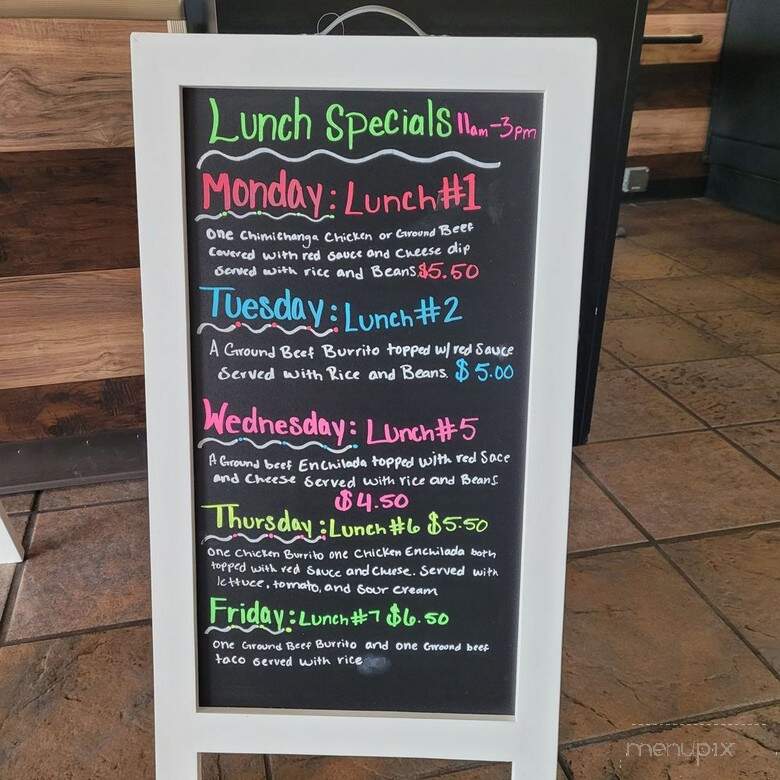 Lunch Specials 11am-3pm
Monday: Lunch#1
One Chimichanga Chicken or Ground Beef
Covered with red sauce and Cheese dip
Served with rice and Beans. $5.50
Tuesday: Lunch#2
A Ground Beef Burrito topped w/ red Sauce
Served with Rice and Beans. $5.00
Wednesday: Lunch#5
A Ground beef Enchilada topped with red Sace
and Cheese Served with rice and Beans.
$4.50
Thursday: Lunch#6 $5.50
One Chicken Burrito one Chicken Enchilada both
topped with red Sauce and Cheese. Served with
lettuce, tomato, and Sour Cream
Friday: Lunch#7 $6.50
One Ground Beef Burrito and one Ground beef
taco Served with rice
menupix